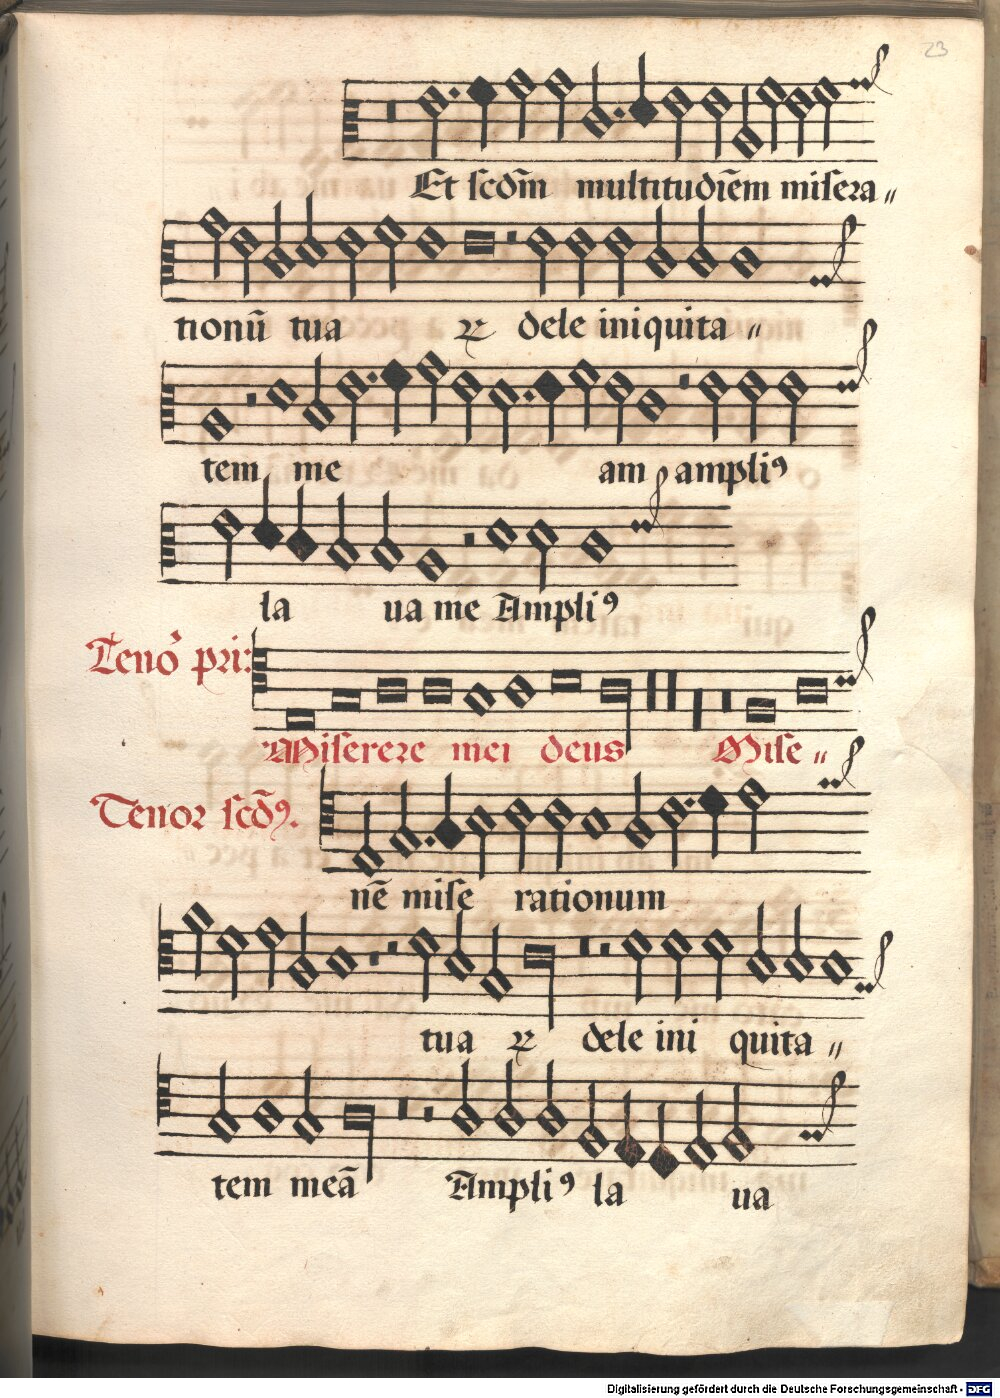 23
Et scdm̄ multitudiēm misera〃
tionū tua ꝝ dele iniquita〃
tem me am ampliꝰ
la ua me Ampliꝰ
Tenoꝛ pri:
Miserere mei deus Mise〃
Tenor scdꝰ.
nē mise rationum
tua ꝝ dele ini quita〃
tem meā Ampliꝰ la ua
Digitalisierung gefördert durch die Deutsche Forschungsgemeinschaft - DFG